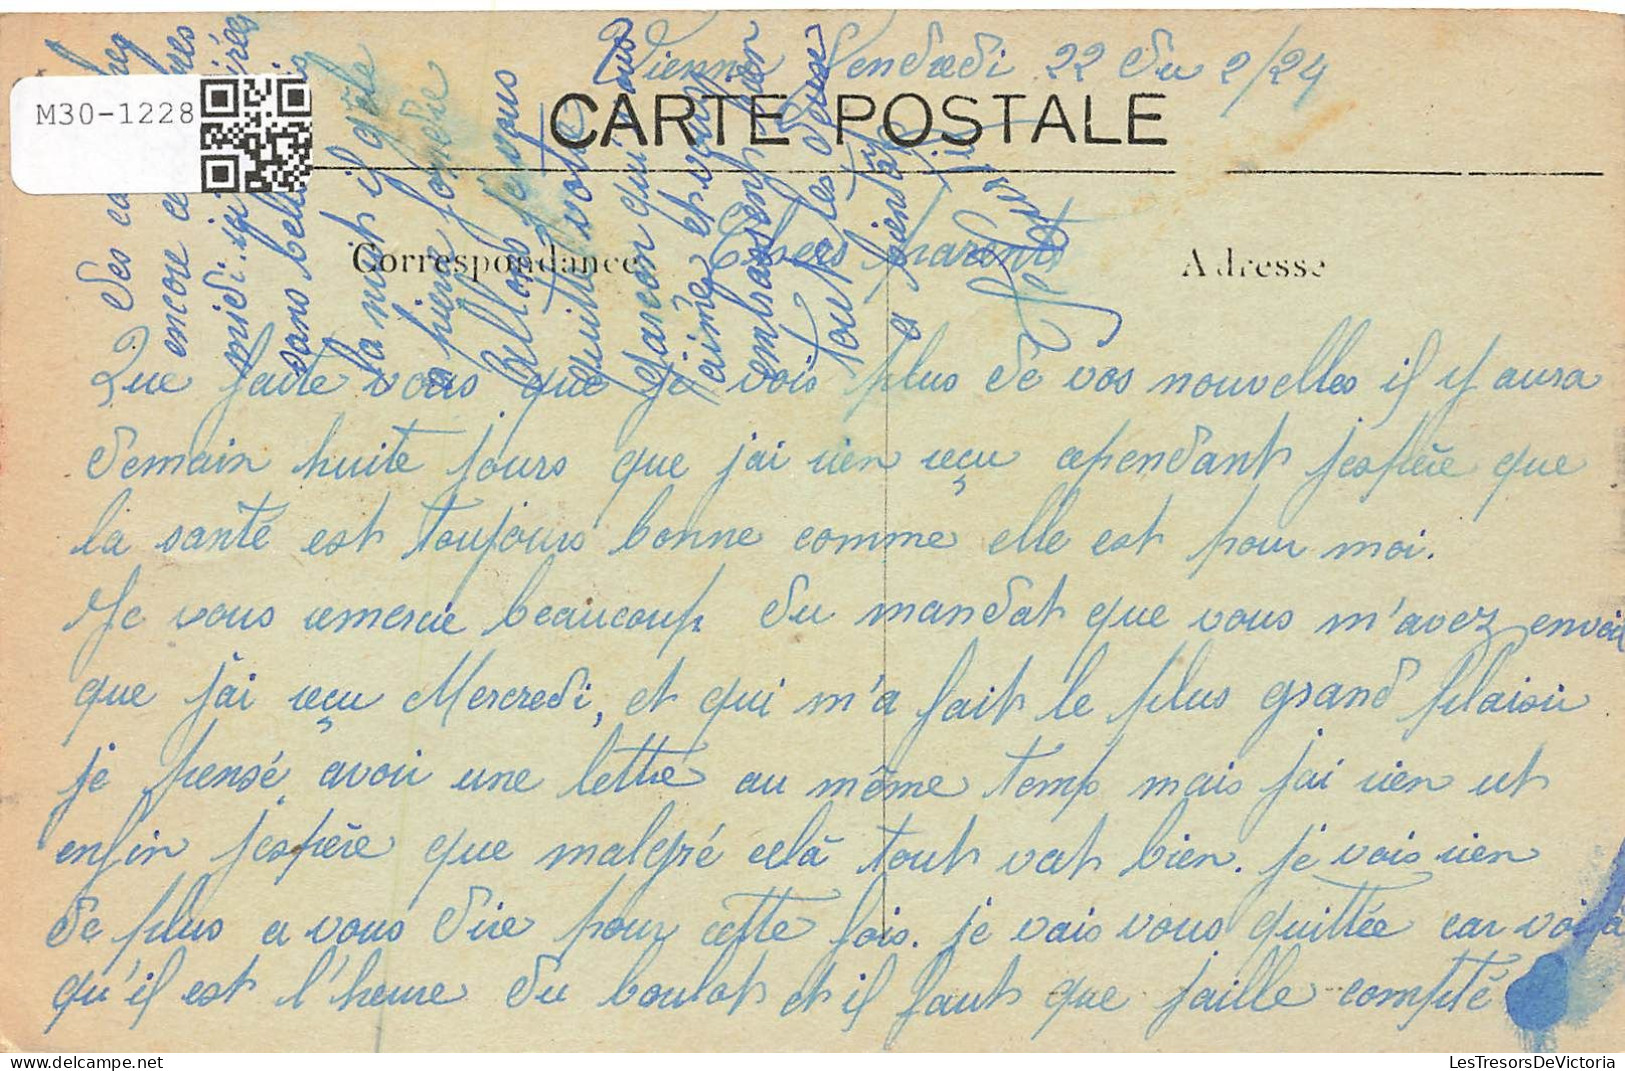 Vienne Vendredi 22 du 2/24
CARTE POSTALE
M30-1228
Correspondance
Adresse
Chers parents
Que faite vous que je vois plus de vos nouvelles il y aura
demain huite jours que jai rien reçu cependant jespère que
la santé est toujours bonne comme elle est pour moi.
Je vous remercie beaucoup du mandat que vous m'avez envoié
que jai reçu Mercredi, et qui m'a fait le plus grand plaisir
je pensé avoir une lettre au même temp mais jai rien ut
enfin jespère que malgré celà tout vat bien. je vois rien
de plus a vous dire pour cette fois. je vais vous quittée car voila
qu'il est l'heure du boulot et il faut que jaille compté
des
encore
midi
sans
la nuit il gèle
a pierre fendre
allons je vous
quitte votre
garçon qui vous
aime et vous
embrassent bien
tout les deux
a bientôt